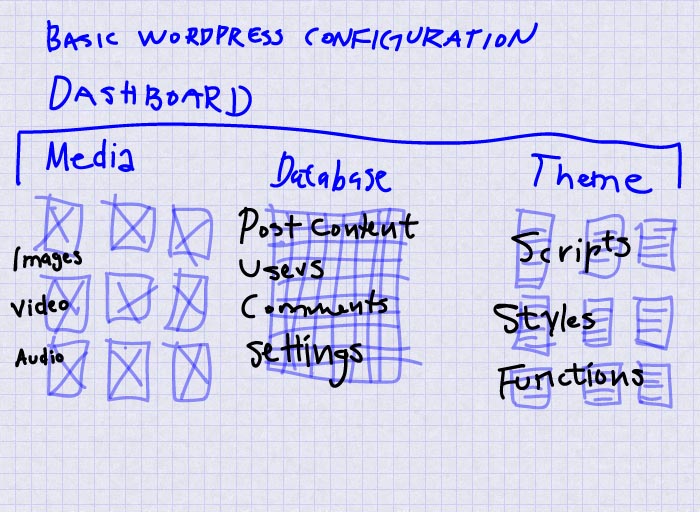 BASIC WORDPRESS CONFIGURATION
DASHBOARD
Media
Images
Video
Audio
Database
Post Content
Users
Comments
Settings
Theme
Scripts
Styles
Functions